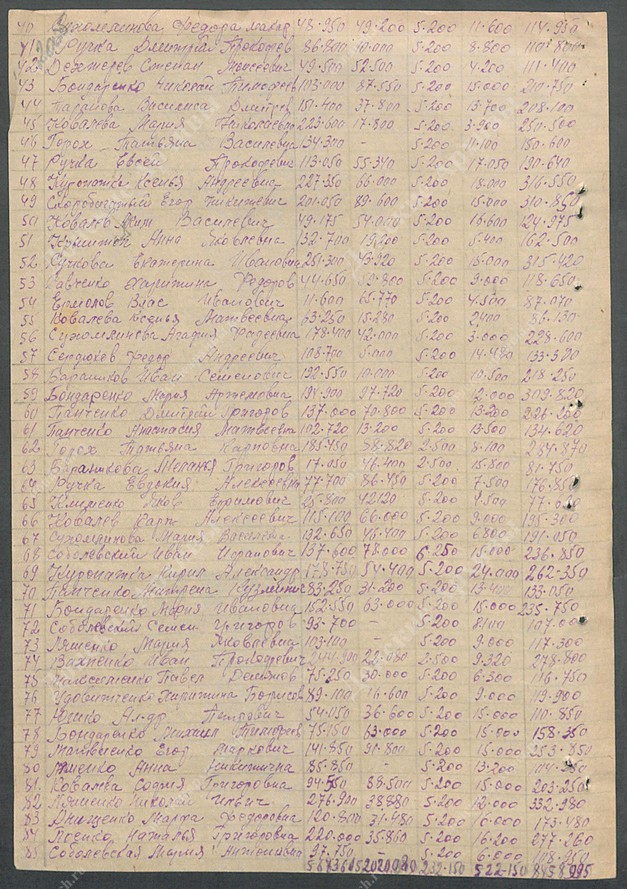 40 Сухомлинова Федора 48·950 49·200 5·200 11·600 114·950
41 Ручка Дмитрий Прокофев 86·800 10·000 5·200 8·800 110·800
42 Степан 49·500 52·500 5·200 4·200 111·400
43 Бондаренко Николай Тимофеев 103·000 87·550 5·200 15·000 210·750
44 Василиса Дмитрев 151·400 37·800 5·200 13·700 208·100
45 Ковалева Мария Николаевна 223·600 17·800 5·200 3·900 250·500
46 Горох Татьяна Василевна 134·300 - 5·200 11·100 150·600
47 Ручка Евсей Прокофевич 113·050 55·340 5·200 17·050 190·640
48 Куропатка Ксенья Андреевна 227·350 66·000 5·200 18·000 316·550
49 Скоробогатый Егор Никитевич 201·050 89·600 5·200 15·000 310·850
50 Ковалев Василевич 49·175 54·000 5·200 16·600 124·975
51 Анна Яковлевна 132·700 19·200 5·200 5·400 162·500
52 Сучкова Екатерина Ивановна 251·300 43·920 5·200 15·000 315·420
53 Савченко Харитина Федоров 44·650 59·800 5·200 9·000 118·650
54 Ермолов Влас Иванович 11·600 65·770 5·200 4·500 87·070
55 Ковалева Ксенья Матвеевна 63·250 15·280 5·200 2,400 86·130
56 Сухомлинова Агафия Фадеевна 178·400 42·000 5·200 3·000 228·600
57 Сердюков Федор Андреевич 108·700 5·000 5·200 14·480 133·380
58 Баранников Иван Семенович 192·550 10·000 5·200 10·500 218·250
59 Бондаренко Мария Артемовна 194·900 97·720 5·200 12·000 309·820
60 Пантенко Дмитрий Григоров 137·000 70·800 5·200 13·200 226·200
61 Пантенко Анастасия Матвеевна 102·720 13·200 5·200 13·500 134·620
62 Горох Татьяна Карповна 185·450 88·820 2·500 8·100 284·870
63 Баранникова Меланья Григоров 17·050 46·400 2·500 15·800 81·750
64 Ручка Евдокия Алексеевна 77·700 86·450 5·200 7·500 176·850
65 Клименко Яков Ефимович 25·800 42120 5·200 4·500
66 Ковалев Карп Алексеевич 115·100 66·000 5·200 9·000 195·300
67 Сухомлинова Мария Василевна 132·650 46·400 5·200 6800 191·050
68 Соболевский Иван 137·600 78·000 6·250 15·000 236·850
69 Куропатка Кирил Александр 178·750 54·400 5·200 24·000 262·350
70 Пантенко Митрена Кузминич 83·250 31·200 5·200 13·400 133·050
71 Бондаренко Мария Ивановна 152·550 63·000 5·200 15·000 235·750
72 Соболевский Семен Григоров 93·700 - 5·200 8100 107·000
73 Ляшенко Мария Яковлевна 103·100 - 5·200 9·000 117·300
74 Вахненко Иван Прокофевич 244·900 22·080 2·500 9·320 278·800
75 Павел Демянов 75·250 30·000 5·200 6·300 116·750
76 Удовитченко Харитина Борисов 89·100 16·600 5·200 9·000 119·900
77 Юшко Ал-др Петрович 54·050 36·600 5·200 15·000 110·850
78 Бондаренко Михаил Тимофеев 75·150 63·000 5·200 15·000 158·350
79 Матвиенко Егор Маркович 141·850 91·800 5·200 15·000 253·850
80 Ляшенко Анна Никитична 85·850 - 5·200 13·200
81 Ковалева София Григоровна 94·550 88·500 5·200 15·000 203·250
82 Ляшенко Николай Ильич 276·900 38880 5·200 12·000 332·980
83 Марта Федоровна 120·800 31·480 5·200 6·000 173·480
84 Лосенко Наталья Григоровна 220·000 35·860 5·200 16·200 277·260
85 Соболевская Мария Антоновна 97·750 - 5·200 6·000 108·950
522·150 8458·995